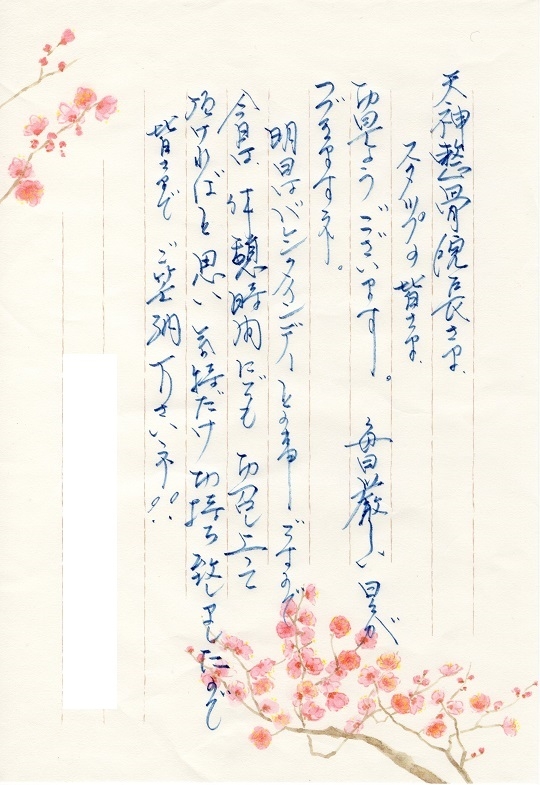 天神整骨院長さま
スタッフの皆さま
お早ようございます。毎日厳しい日が
つづきますネ。
明日はバレンタインデーとの事ですので
今日は、休憩時間にでも お召し上って
頂ければと思い気持だけお持ち致しましたので
皆さまで ご笑納下さいネ!!